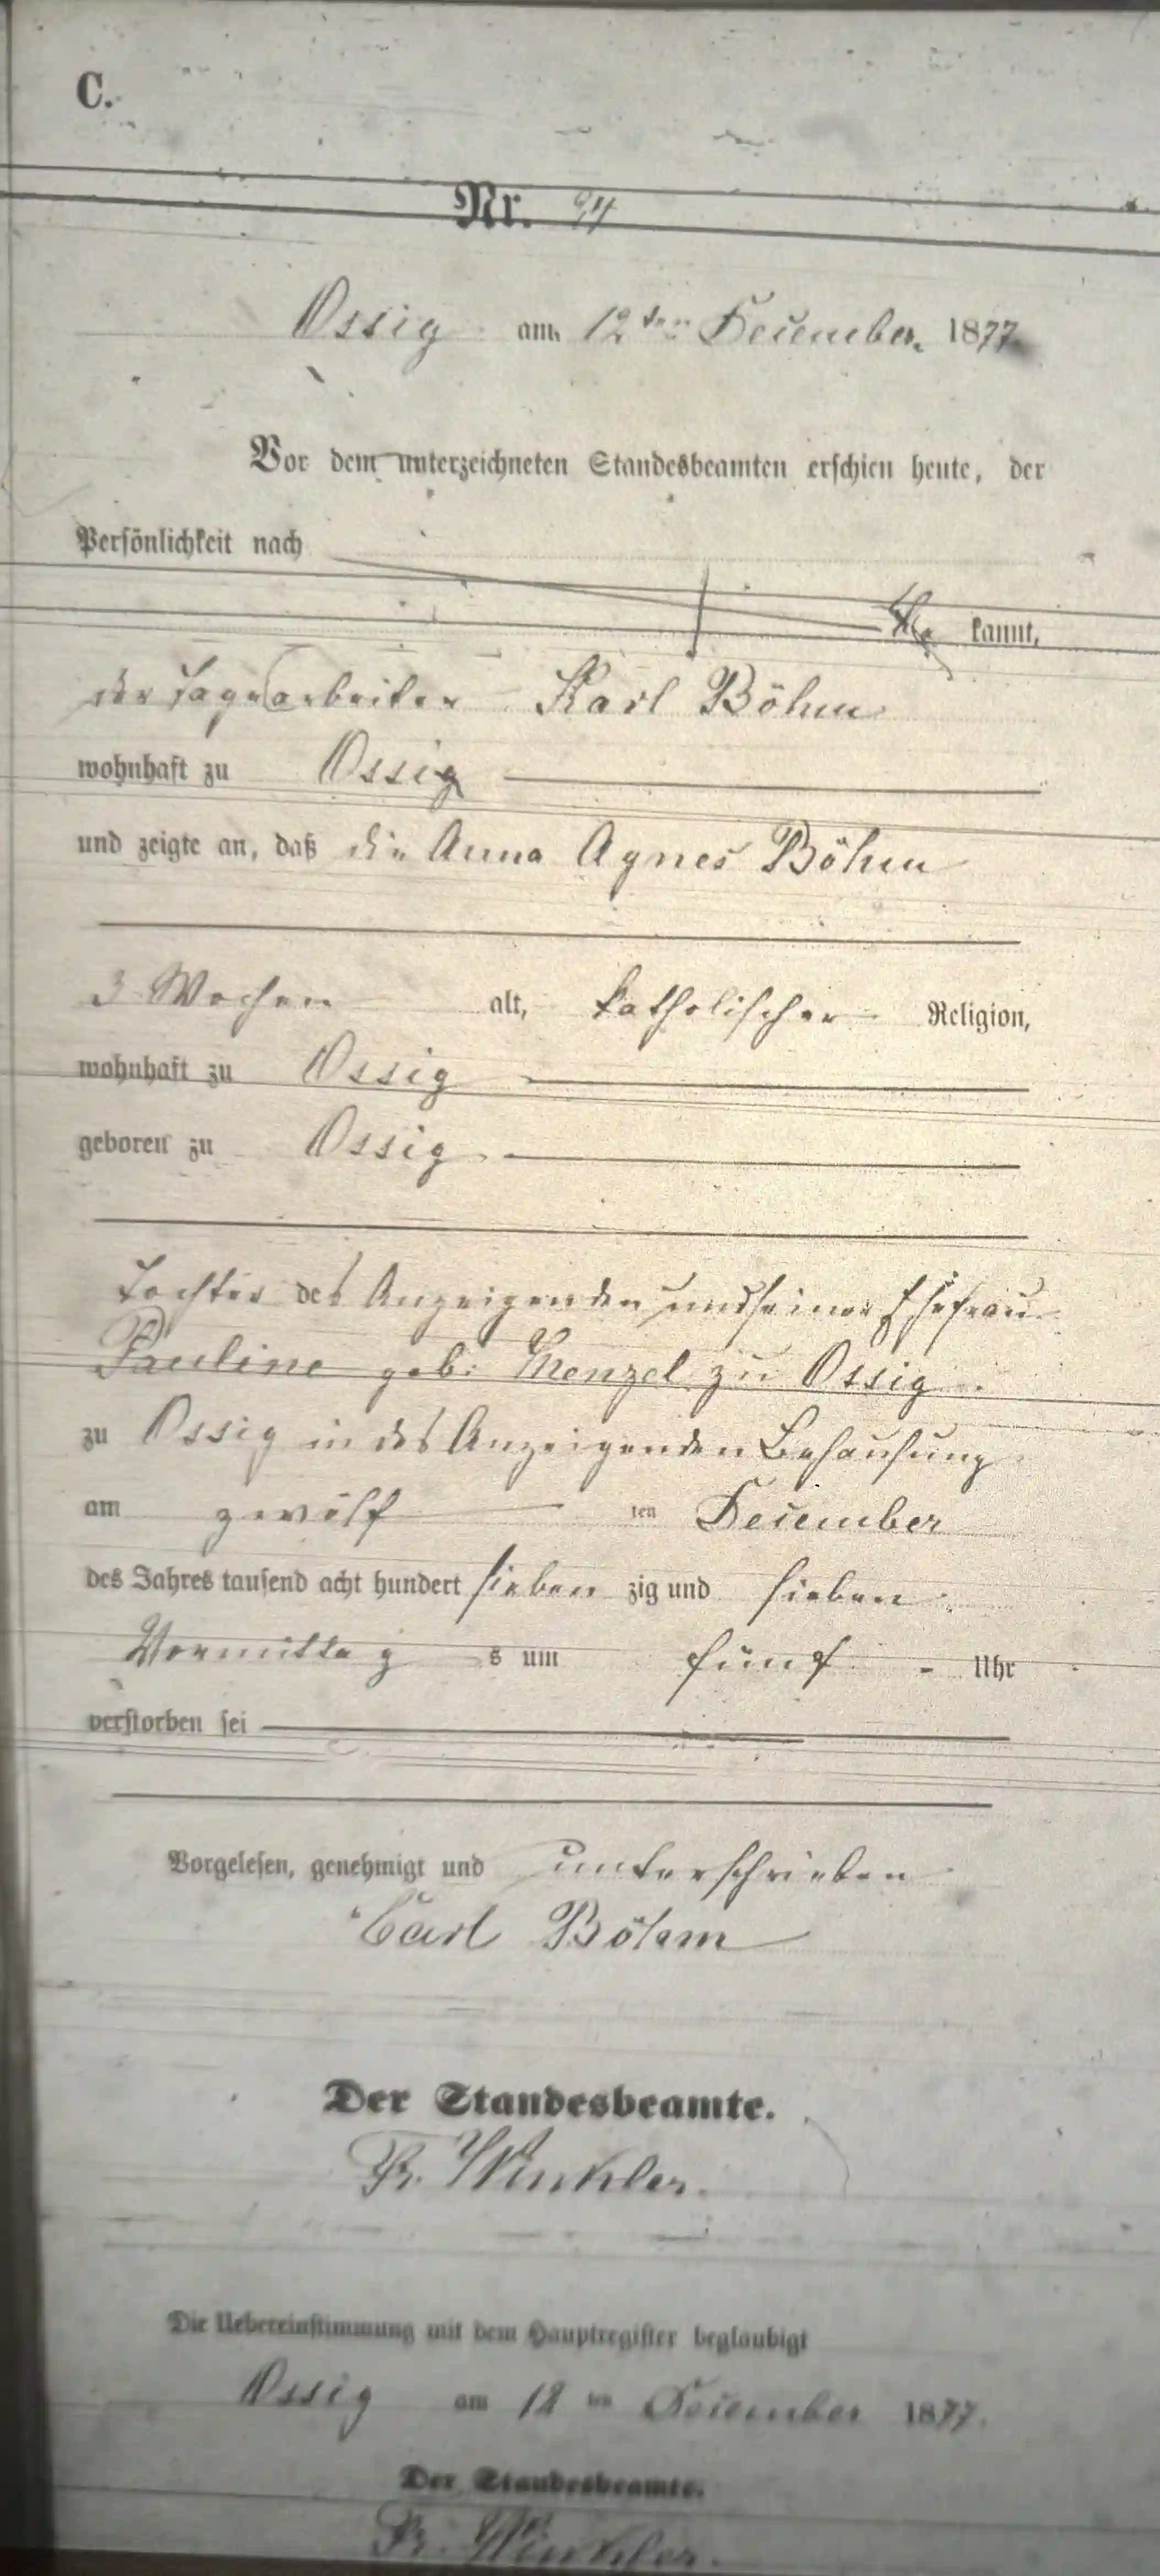 C.
Nr. 94
Ossig am 12ten December 1877
Vor dem unterzeichneten Standesbeamten erschien heute, der
Persönlichkeit nach
kannt,
der Tagearbeiter Karl Böhm
wohnhaft zu Ossig
und zeigte an, daß die Anna Agnes Böhm
3 Wochen alt, katholischer Religion,
wohnhaft zu Ossig
geboren zu Ossig
Tochter des Anzeigenden und seiner Ehefrau
Pauline geb. Menzel zu Ossig
zu Ossig in des Anzeigenden Behausung
am zwölf ten December
des Jahres tausend acht hundert sieben zig und sieben
Vormittag s um fünf Uhr
verstorben sei
Vorgelesen, genehmigt und unterschrieben
Carl Böhm
Der Standesbeamte.
Fr. Winkler.
Die Uebereinstimmung mit dem Hauptregister beglaubigt
Ossig am 12 ten December 1877.
Der Standesbeamte.
Fr. Winkler.